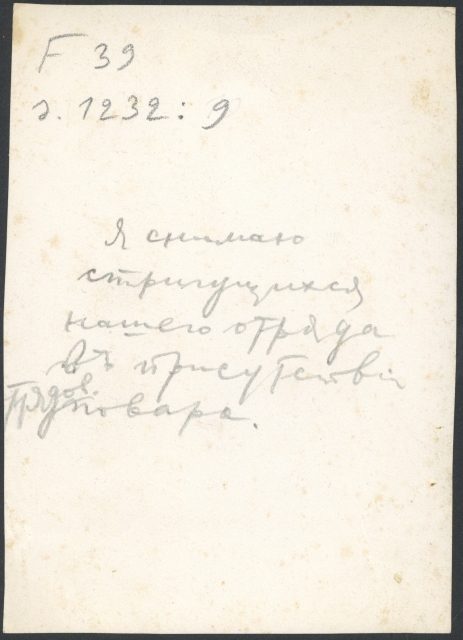 F 39
д. 1232:9
Я снимаю
стригущихся
нашего отряда
въ присутствіи
повара.